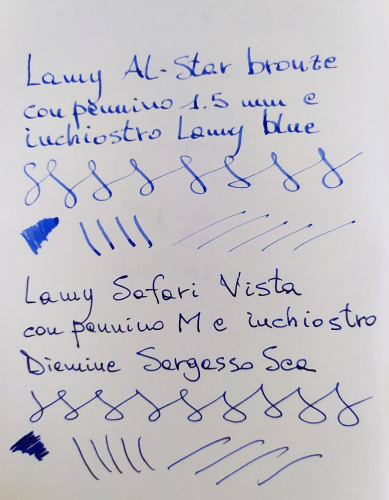 Lamy AL-Star bronze
con pennino 1.5 mm e
inchiostro Lamy blue
Lamy Safari Vista
con pennino M e inchiostro
Diamine Sargasso Sea